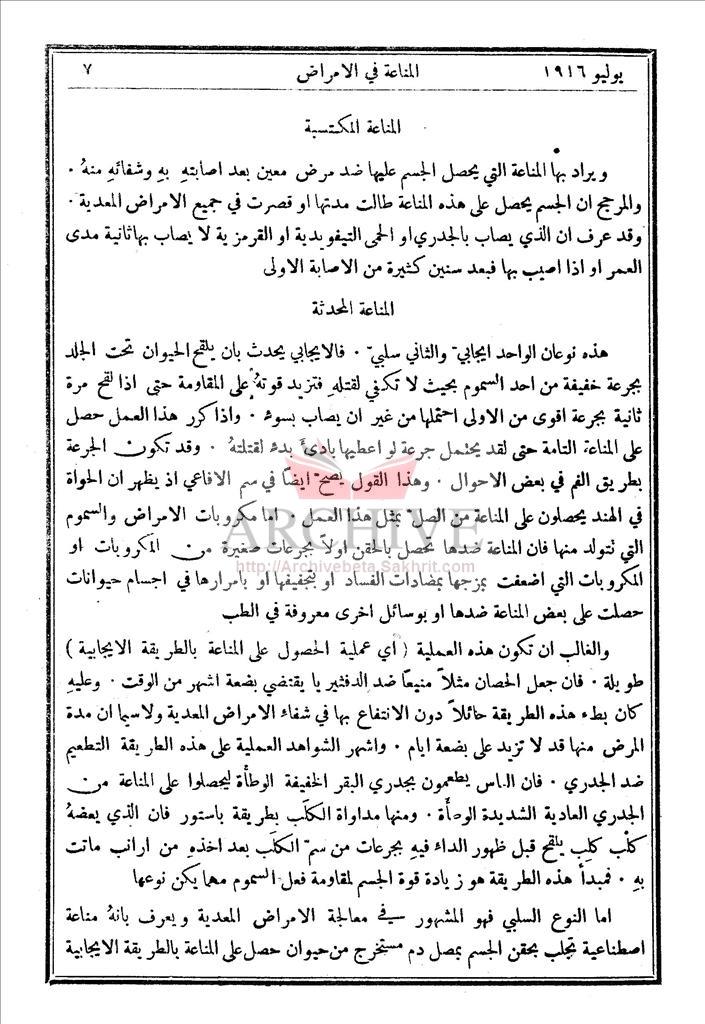 يوليو ١٩١٦ المناعة في الامراض ٧
المناعة المكتسبة
ويراد بها المناعة التي يحصل الجسم عليها ضد مرض معين بعد اصابتهِ بهِ وشفائهِ منهُ .
والمرجح ان الجسم يحصل على هذه المناعة طالت مدتها او قصرت في جميع الامراض المعدية .
وقد عرف ان الذي يصاب بالجدري او الحمى التيفويدية او القرمزية لا يصاب بها ثانية مدى
العمر او اذا اصيب بها فبعد سنين كثيرة من الاصابة الاولى
المناعة المحدثة
هذه نوعان الواحد ايجابيّ والثاني سلبيّ . فالايجابي يحدث بان يلقح الحيوان تحت الجلد
بجرعة خفيفة من احد السموم بحيث لا تكفي لقتلهِ فتزيد قوتهُ على المقاومة حتى اذا لقح مرة
ثانية بجرعة اقوى من الاولى احتملها من غير ان يصاب بسوءٍ . واذا كرر هذا العمل حصل
على المناعة التامة حتى لقد يحتمل جرعة لو اعطيها بادئ بدء لقتلتهُ . وقد تكون الجرعة
بطريق الفم في بعض الاحوال . وهذا القول يصحّ ايضًا في سم الافاعي اذ يظهر ان الحواة
في الهند يحصلون على المناعة من الصلّ بمثل هذا العمل . اما مكروبات الامراض والسموم
التي تتولد منها فان المناعة ضدها تحصل بالحقن اولاً بجرعات صغيرة من المكروبات او
المكروبات التي اضعفت بمزجها بمضادات الفساد او بتجفيفها او بامرارها في اجسام حيوانات
حصلت على بعض المناعة ضدها او بوسائل اخرى معروفة في الطب
والغالب ان تكون هذه العملية ( أي عملية الحصول على المناعة بالطريقة الايجابية )
طويلة . فان جعل الحصان مثلاً منيعًا ضد الدفثيريا يقتضي بضعة اشهر من الوقت . وعليهِ
كان بطء هذه الطريقة حائلاً دون الانتفاع بها في شفاء الامراض المعدية ولاسيما ان مدة
المرض منها قد لا تزيد على بضعة ايام . واشهر الشواهد العملية على هذه الطريقة التطعيم
ضد الجدري . فان الناس يطعمون بجدري البقر الخفيفة الوطأة ليحصلوا على المناعة من
الجدري العادية الشديدة الوطأة . ومنها مداواة الكلَب بطريقة باستور فان الذي يعضهُ
كلْب كلِب يلقح قبل ظهور الداء فيهِ بجرعات من سمّ الكلَب بعد اخذهِ من ارانب ماتت
بهِ . فمبدأ هذه الطريقة هو زيادة قوة الجسم لمقاومة فعل السموم مهما يكن نوعها
اما النوع السلبي فهو المشهور في معالجة الامراض المعدية ويعرف بانهُ مناعة
اصطناعية تجلب بحقن الجسم بمصل دم مستخرج من حيوان حصل على المناعة بالطريقة الايجابية
ARCHIVE
http://Archivebeta.Sakhrit.com